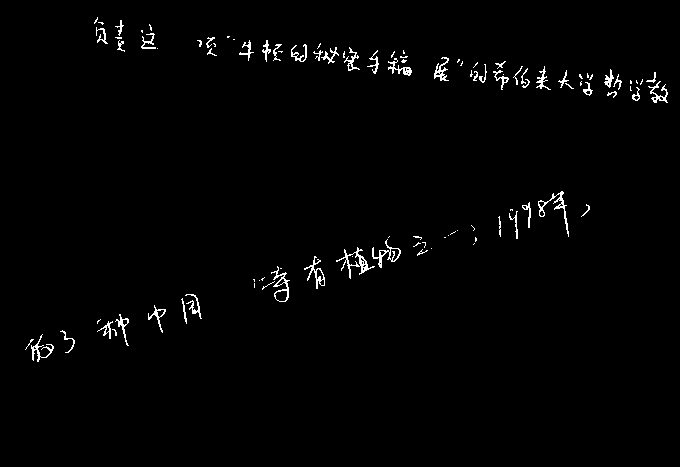 负责这项“牛顿的秘密手稿展”的希伯来大学哲学教
的3种中国特有植物之一；1998年，